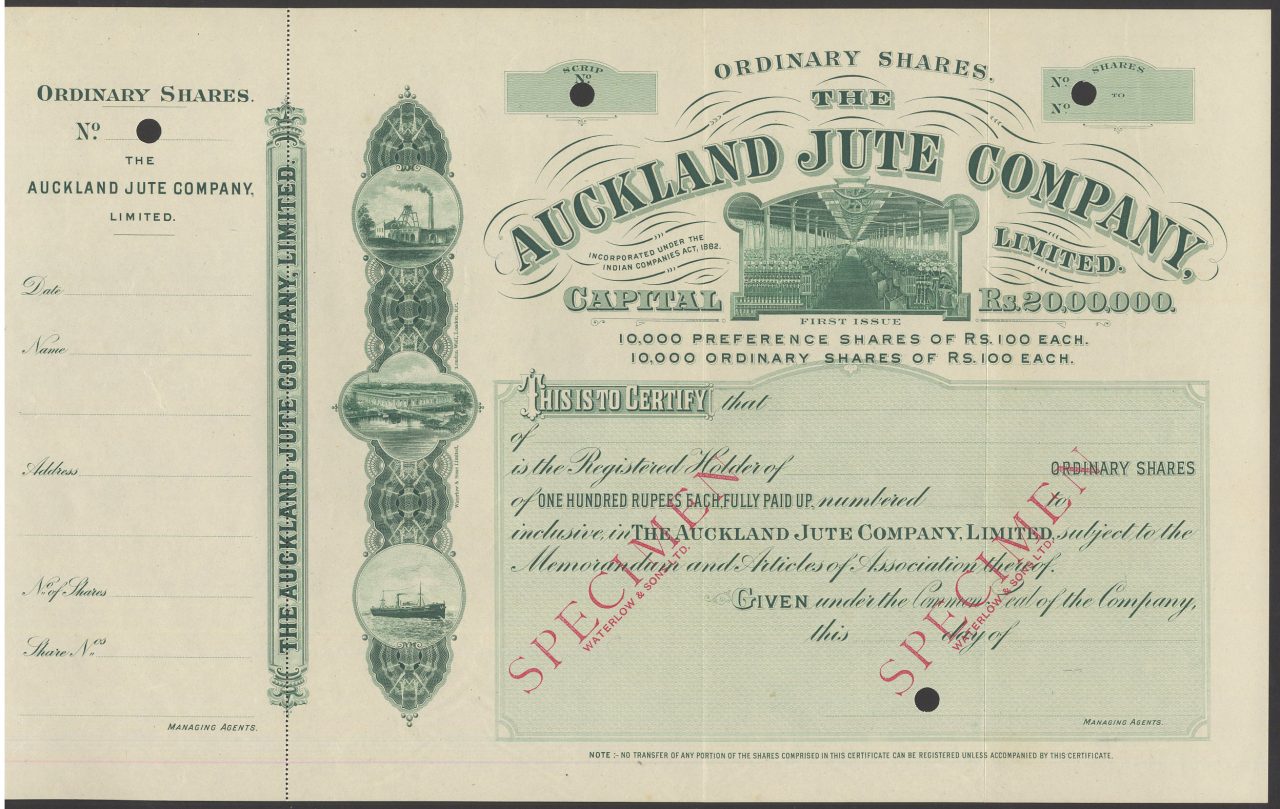 ORDINARY SHARES.
No
THE
AUCKLAND JUTE COMPANY,
LIMITED.
Date
Name
Address
No. of Shares
Share Nos
MANAGING AGENTS.
THE AUCKLAND JUTE COMPANY, LIMITED.
London Wall, London, E.C.
Waterlow & Sons Limited,
SCRIP
No
ORDINARY SHARES.
SHARES
No
TO
No
THE
AUCKLAND JUTE COMPANY,
LIMITED.
INCORPORATED UNDER THE
INDIAN COMPANIES ACT, 1882.
CAPITAL Rs.20,00,000.
FIRST ISSUE
10,000 PREFERENCE SHARES OF RS.100 EACH.
10,000 ORDINARY SHARES OF RS.100 EACH.
THIS IS TO CERTIFY that
of
is the Registered Holder of ORDINARY SHARES
of ONE HUNDRED RUPEES EACH, FULLY PAID UP, numbered to
inclusive, in THE AUCKLAND JUTE COMPANY, LIMITED, subject to the
Memorandum and Articles of Association thereof.
GIVEN under the Common Seal of the Company,
this day of
SPECIMEN
WATERLOW & SONS LTD.
SPECIMEN
WATERLOW & SONS LTD.
MANAGING AGENTS.
NOTE :- NO TRANSFER OF ANY PORTION OF THE SHARES COMPRISED IN THIS CERTIFICATE CAN BE REGISTERED UNLESS ACCOMPANIED BY THIS CERTIFICATE.